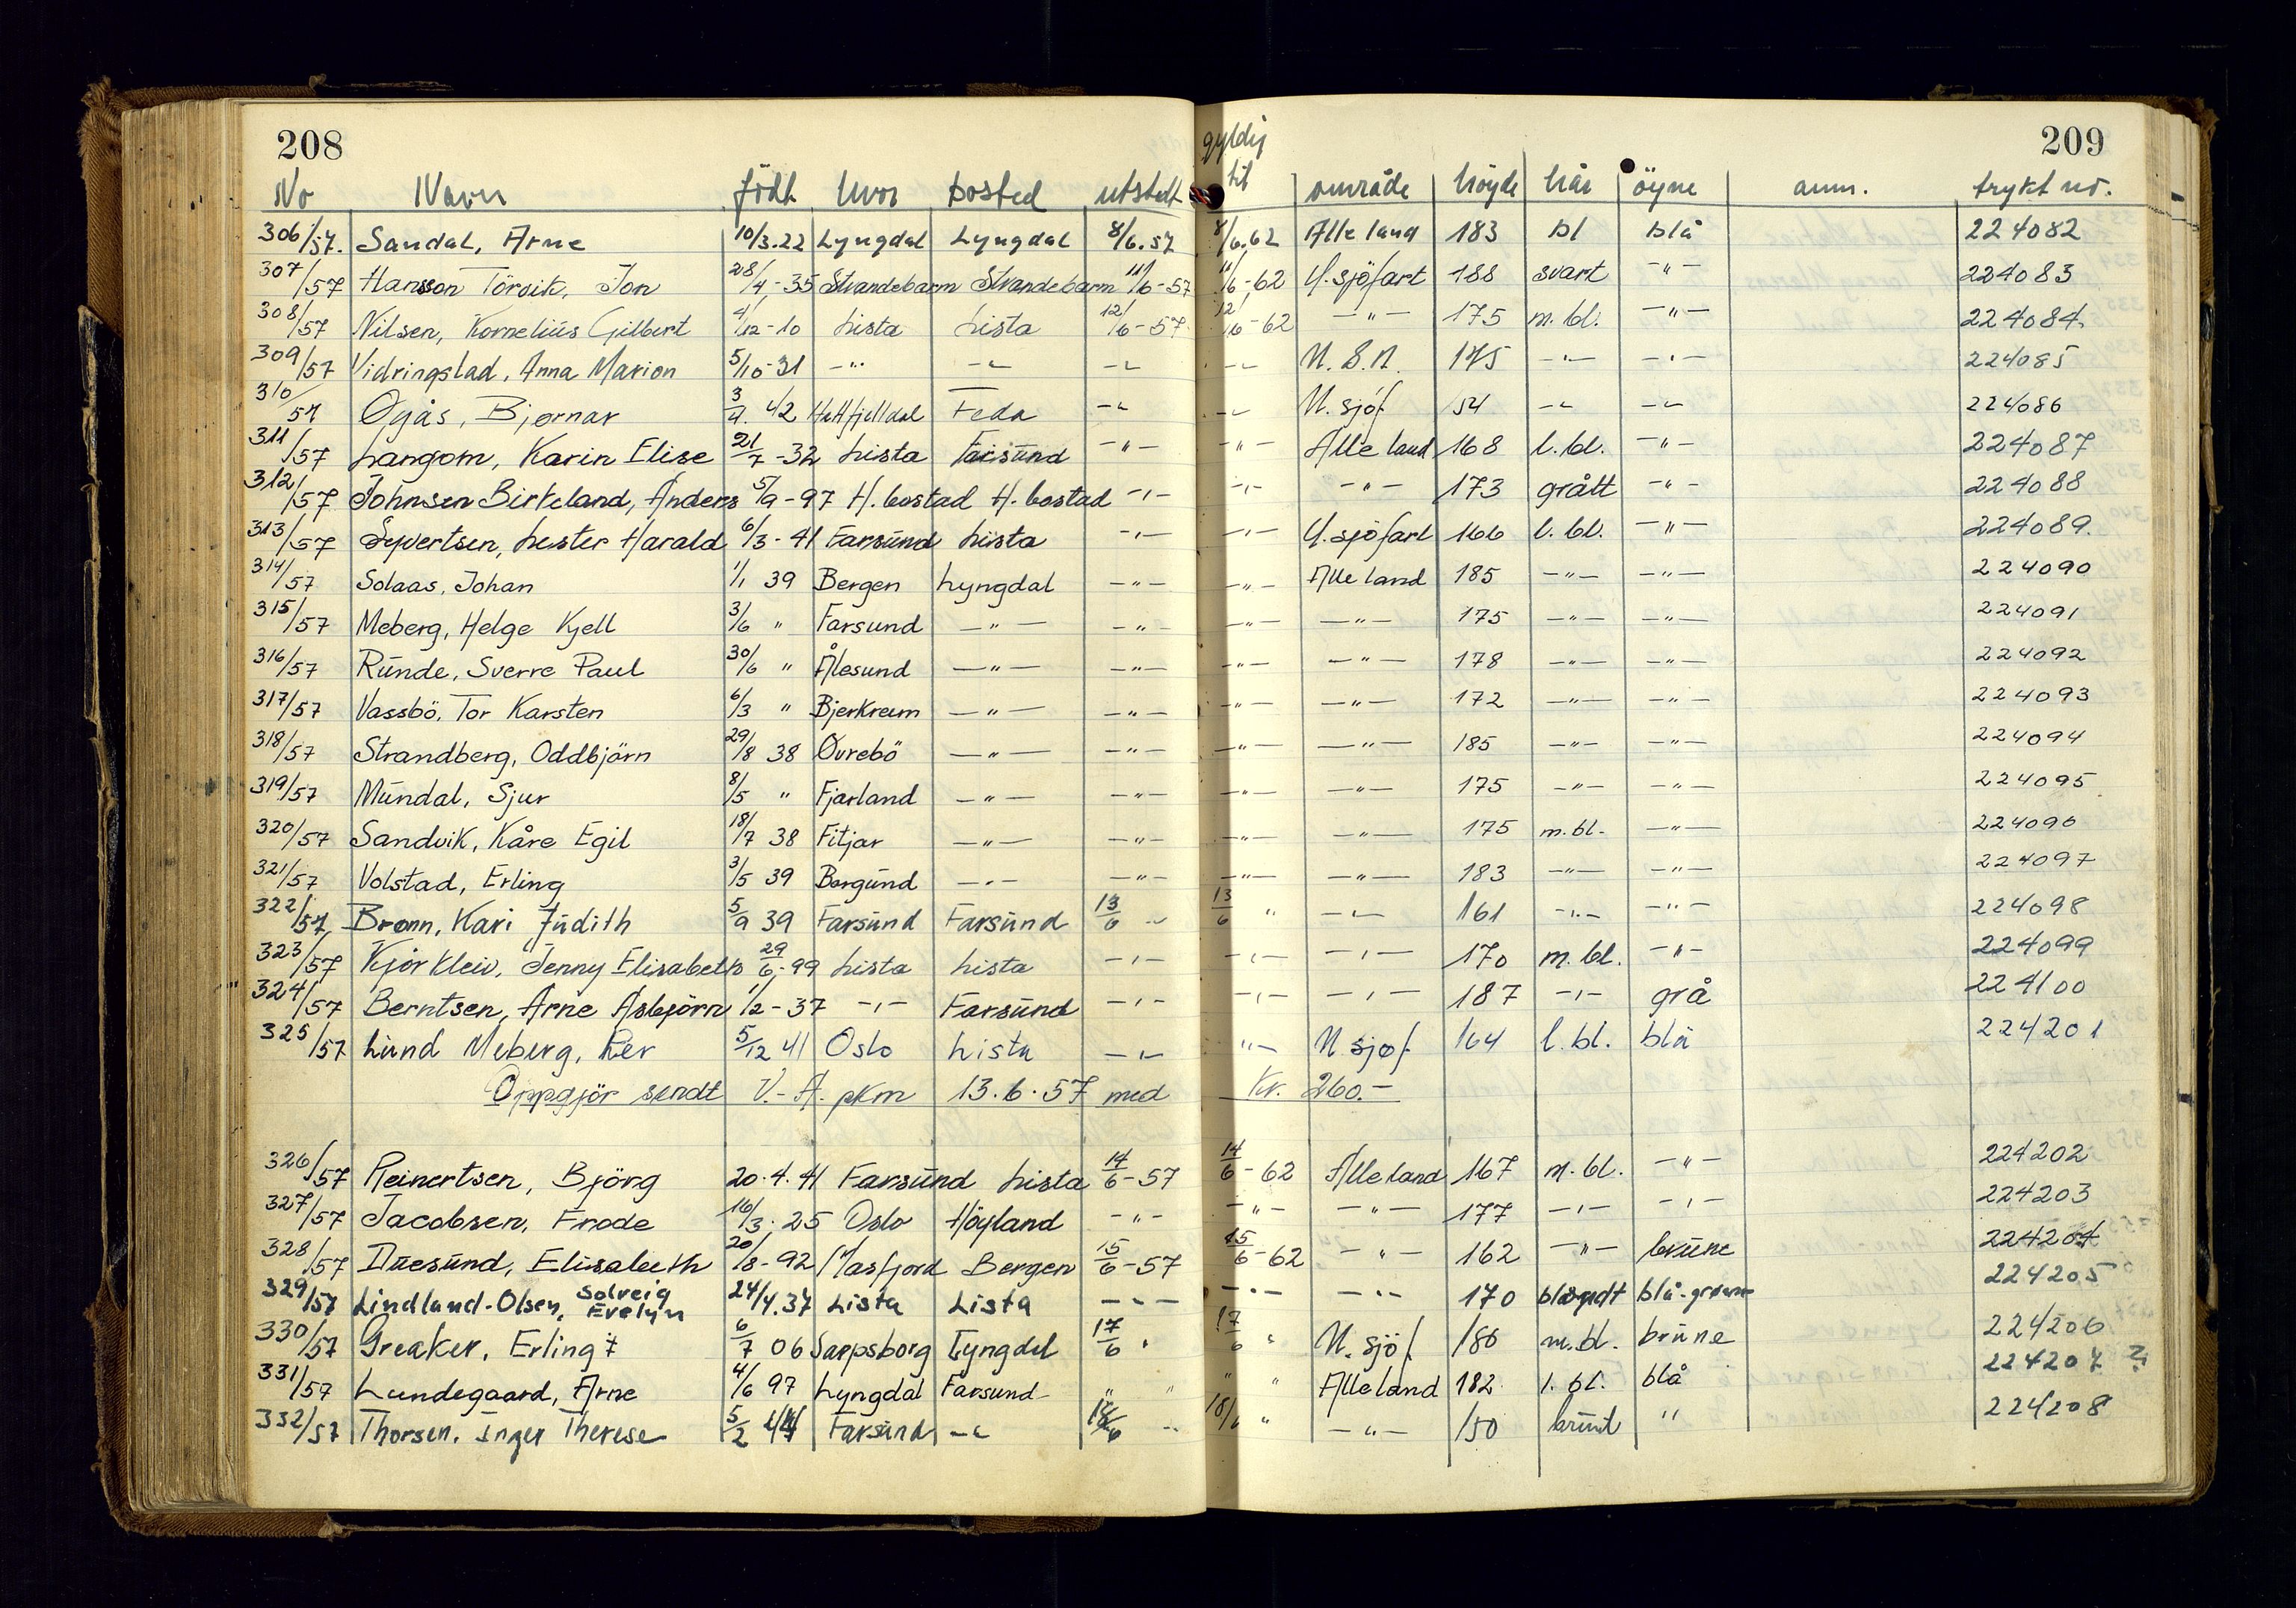 208
209
gyldig
No Navn født hvor bosted utstedt til område höyde hår öyne anm. trykt nr.
306/57. Sandal, Arne 10/3.22 Lyngdal Lyngdal 8/6.57 8/6.62 Alle land 183 bl blå 224082
307/57 Hansson Törvik, Jon 28/4-35 Strandebarm Strandebarm 11/6-57 11/6-62 U.sjöfart 188 svart -"- 224083
308/57 Nilsen, Kornelius Gilbert 4/12-10 Lista Lista 12/6-57 12/6-62 -"- 175 m.bl. -"- 224084
309/57 Vidringstad, Anna Marion 5/10-31 -"- -"- -"- -"- U.S.A. 175 -"- -"- 224085
310/57 Øgås, Bjørnar 3/4. 42 Hattfjelldal Feda -"- -"- U.sjöf. 154 -"- -"- 224086
311/57 Langom, Karin Elise 21/7-32 Lista Farsund -"- -"- Alle land 168 l.bl. -"- 224087
312/57 Johnsen Birkeland, Anders 5/9-97 H.bostad H.bostad -"- -"- -"- 173 grått -"- 224088
313/57 Syvertsen, Lester Harald 6/3-41 Farsund Lista -"- -"- U.sjöfart 166 l.bl. -"- 224089.
314/57 Solaas, Johan 1/1 39 Bergen Lyngdal -"- -"- Alle land 185 -"- -"- 224090
315/57 Meberg, Helge Kjell 3/6 " Farsund -"- -"- -"- -"- 175 -"- -"- 224091
316/57 Runde, Sverre Paul 30/6 " Ålesund -"- -"- -"- -"- 178 -"- -"- 224092
317/57 Vassbö, Tor Karsten 6/3 " Bjerkreim -"- -"- -"- -"- 172 -"- -"- 224093
318/57 Strandberg, Oddbjörn 29/8 38 Øvrebö -"- -"- -"- -"- 185 -"- -"- 224094
319/57 Mundal, Sjur 8/5 " Fjærland -"- -"- -"- -"- 175 -"- -"- 224095
320/57 Sandvik, Kåre Egil 18/7 38 Fitjar -"- -"- -"- -"- 175 m.bl. -"- 224096
321/57 Volstad, Erling 3/5 39 Borgund -"- -"- -"- -"- 183 -"- -"- 224097
322/57 Brønn, Kari Judith 5/9 39 Farsund Farsund 13/6 " 13/6 " -"- 161 -"- -"- 224098
323/57 Kjørkleiv, Jenny Elisabeth 29/6-99 Lista Lista -"- -"- -"- 170 m.bl. -"- 224099
324/57 Berntsen, Arne Asbjörn 1/2-37 -"- Farsund -"- -"- -"- 187 -"- grå 224100
325/57 Lund Meberg, Per 5/12 41 Oslo Lista -"- -"- U sjøf. 164 l.bl. blå 224201
Oppgjör sendt V.-A. pkm 13.6.57 med kr. 260.-
326/57 Reinertsen, Björg 20.4.41 Farsund Lista 14/6-57 14/6-62 Alle land 167 m.bl. -"- 224202
327/57 Jacobsen, Frode 16/3.25 Oslo Höyland -"- -"- -"- 177 -"- -"- 224203
328/57 Duesund, Elisabeth 20/8-92 Masfjord Bergen 15/6-57 15/6-62 -"- 162 -"- brune 224204
329/57 Lindland-Olsen, Solveig Evelyn 24/4.37 Lista Lista -"- -"- -"- 170 blondt blå-grønne 224205
330/57 Greaker, Erling 6/7 06 Sarpsborg Lyngdal 17/6 " 17/6 " U.sjöf. 186 m.bl. brune 224206
331/57 Lundegaard, Arne 4/6 97 Lyngdal Farsund " " " " Alle land 182 l.bl. blå 224207
332/57 Thorsen, Inger Therese 5/2 44 Farsund -"- 18/6 " 18/6 " -"- 150 brunt " 224208